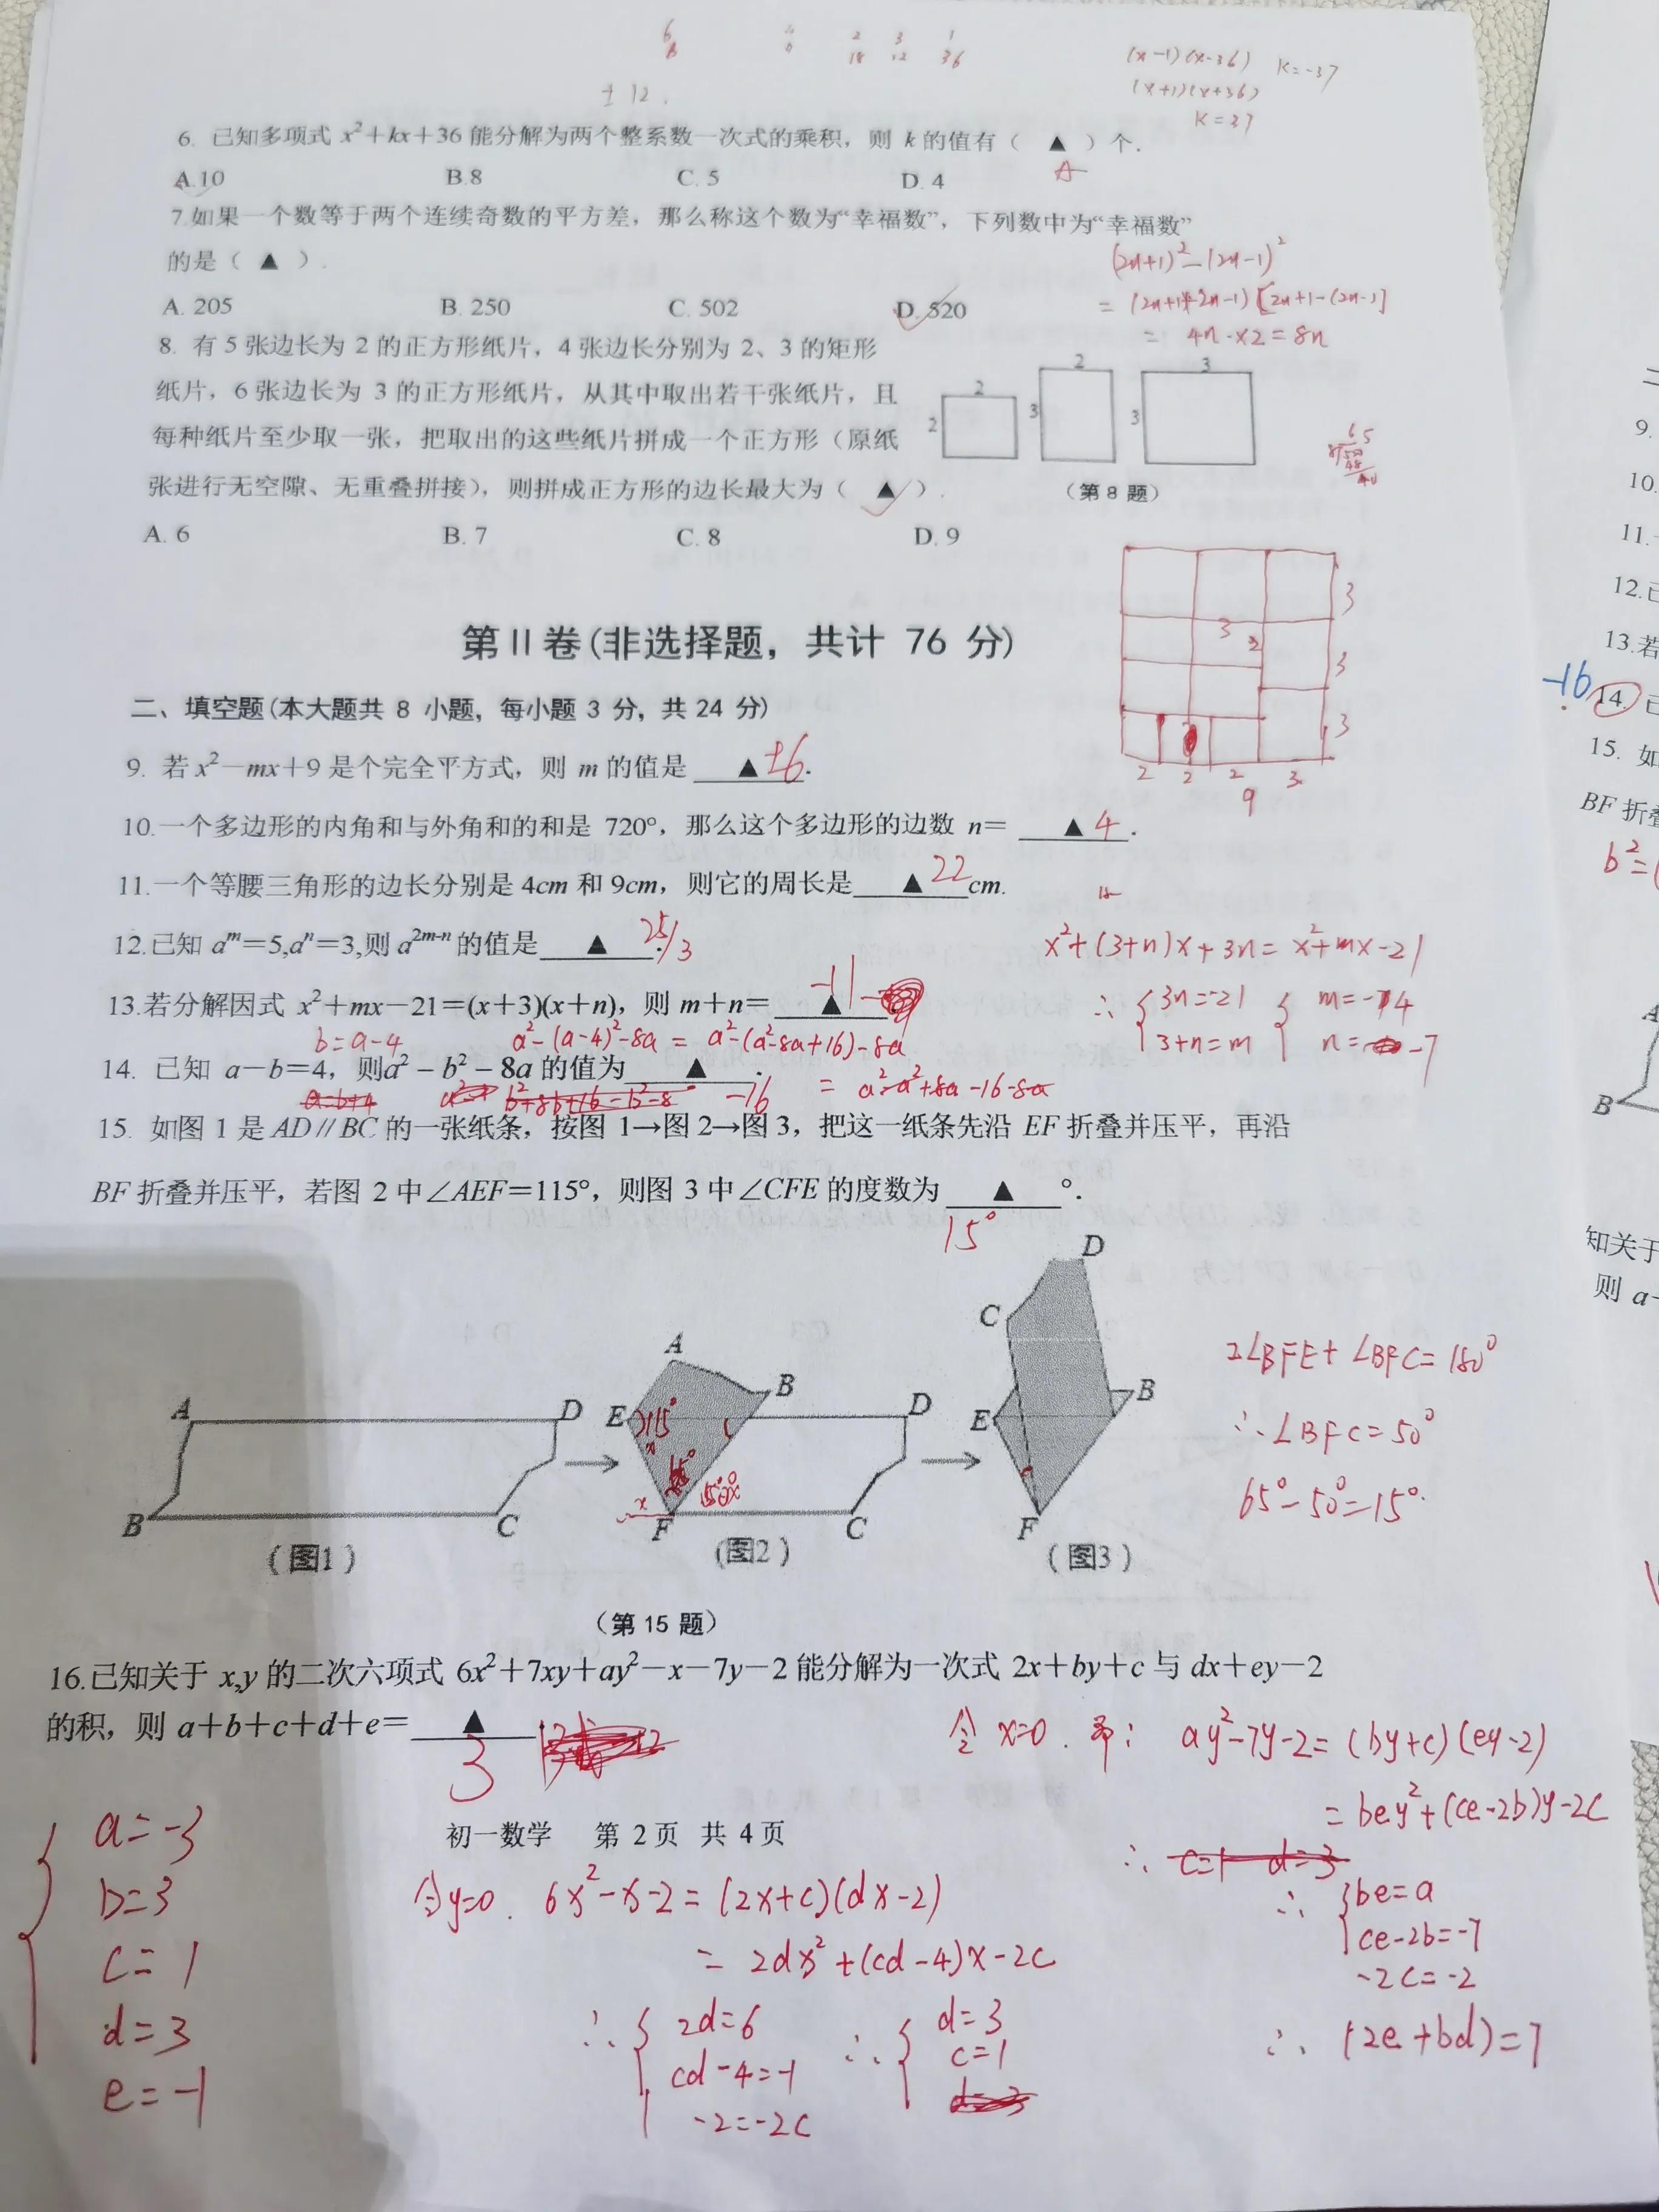 6 2 3 1
18 12 36
(x-1)(x-36) K=-37
(x+1)(x+36)
K=37
±12.
6. 已知多项式 x²+kx+36 能分解为两个整系数一次式的乘积，则 k 的值有（ ▲ ）个.
A
A.10 B.8 C. 5 D. 4
7.如果一个数等于两个连续奇数的平方差，那么称这个数为“幸福数”，下列数中为“幸福数”
的是（ ▲ ）.
(2n+1)²-(2n-1)²
A. 205 B. 250 C. 502 D. 520
=(2n+1+2n-1)[2n+1-(2n-1]
= 4n·×2=8n
8. 有 5 张边长为 2 的正方形纸片，4 张边长分别为 2、3 的矩形
纸片，6 张边长为 3 的正方形纸片，从其中取出若干张纸片，且
每种纸片至少取一张，把取出的这些纸片拼成一个正方形（原纸
张进行无空隙、无重叠拼接），则拼成正方形的边长最大为（ ▲ ）.
2 2 3 2 3 3
（第 8 题）
65
A. 6 B. 7 C. 8 D. 9
3 3 2 3 3
2 2 2 3
9
第 II 卷(非选择题，共计 76 分)
二、填空题(本大题共 8 小题，每小题 3 分，共 24 分)
9. 若 x²－mx＋9 是个完全平方式，则 m 的值是 ▲ ±6.
10.一个多边形的内角和与外角和的和是 720°，那么这个多边形的边数 n＝ ▲ 4.
11.一个等腰三角形的边长分别是 4cm 和 9cm，则它的周长是 ▲ 22 cm.
12.已知 aᵐ＝5,aⁿ＝3,则 a²ᵐ⁻ⁿ 的值是 ▲ 25/3.
x²+(3+n)x+3n=x²+mx-21
13.若分解因式 x²+mx－21＝(x＋3)(x＋n)，则 m＋n＝ ▲ -11
∴ { 3n=-21 { m=-4
3+n=m n= -7
b=a-4 a²-(a-4)²-8a = a²-(a²-8a+16)-8a
14. 已知 a－b＝4，则a²－b²－8a 的值为 ▲ .
a=b+4 -16 = a²-a²+8a-16-8a
15. 如图 1 是 AD∥BC 的一张纸条，按图 1→图 2→图 3，把这一纸条先沿 EF 折叠并压平，再沿
BF 折叠并压平，若图 2 中∠AEF＝115°，则图 3 中∠CFE 的度数为 ▲ °.
15°
A D B C
（图1）
A B E D F C
115°
x
（图2）
D C B E F
（图3）
2∠BFE+∠BFC=180°
∴∠BFC=50°
65°-50°=15°.
（第 15 题）
16.已知关于 x,y 的二次六项式 6x²＋7xy＋ay²－x－7y－2 能分解为一次式 2x＋by＋c 与 dx＋ey－2
的积，则 a＋b＋c＋d＋e＝ ▲
3
令 x=0. 即: ay²-7y-2=(by+c)(ey-2)
=bey²+(ce-2b)y-2c
∴ c=1 d=3
∴ { be=a
ce-2b=-7
-2c=-2
∴ (2e+bd)=7
初一数学 第 2 页 共 4 页
令y=0. 6x²-x-2=(2x+c)(dx-2)
= 2dx²+(cd-4)x-2c
∴ { 2d=6 ∴ { d=3
cd-4=-1 c=1
-2=-2c
a=-3
b=3
c=1
d=3
e=-1
二
9.
10.
11.
12.已
13.若
-16 14. 已
15. 如
BF 折叠
b²=(
A
B
知关于
则 a